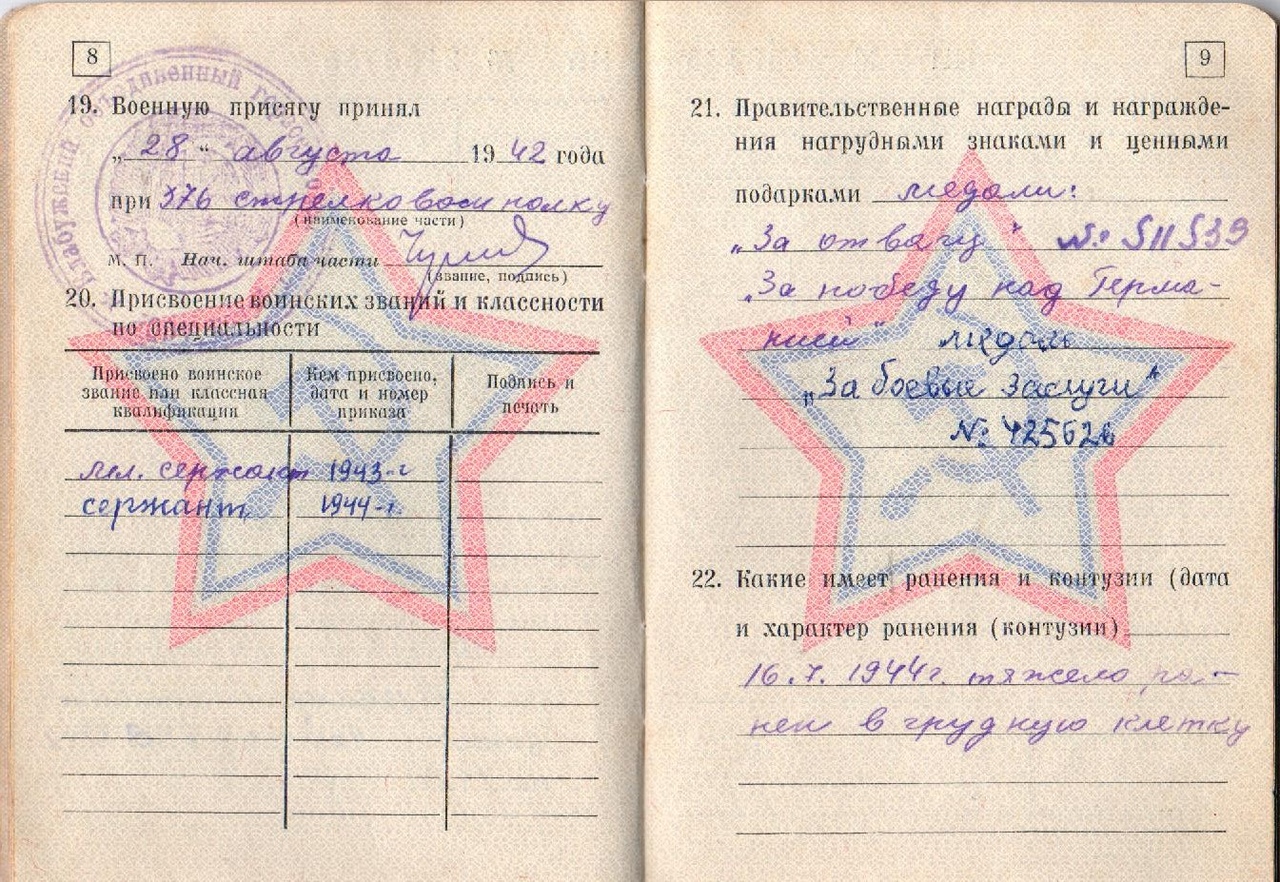 8
19. Военную присягу принял
„ 28 “ августа 1942 года
при 376 стрелковом полку
(наименование части)
М. П. Нач. штаба части
(звание, подпись)
20. Присвоение воинских званий и классности
по специальности
Присвоено воинское
звание или классная
квалификация
Кем присвоено,
дата и номер
приказа
Подпись и
печать
мл. сержант 1943-г
сержант 1944-г.
9
21. Правительственные награды и награжде-
ния нагрудными знаками и ценными
подарками медали:
„За отвагу" №: 511539
„За победу над Герма-
нией" медаль
„За боевые заслуги"
№: 425626
22. Какие имеет ранения и контузии (дата
и характер ранения (контузии)
16.7. 1944г. тяжело ра-
нен в грудную клетку